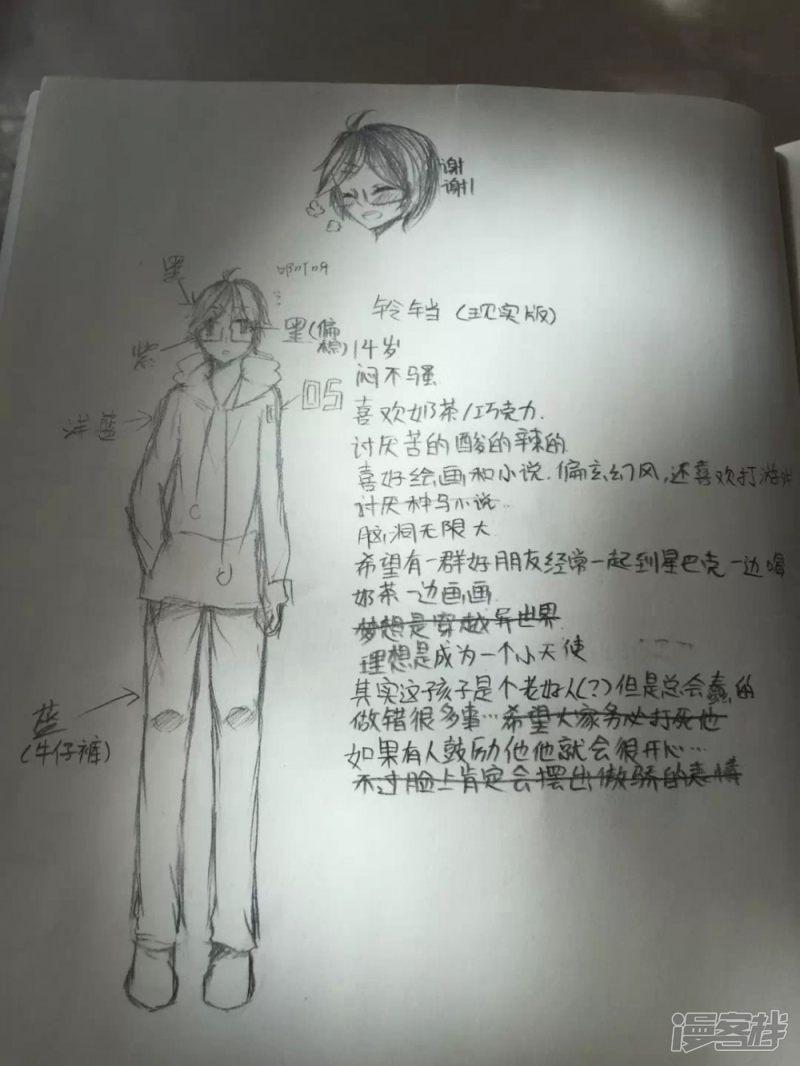 谢
谢!
黑
啊咧咧
?
铃铛（现实版）
黑(偏
棕)
紫
14岁
闷不骚
05
洋蓝
喜欢奶茶/巧克力.
讨厌苦的酸的辣的
喜好绘画和小说.偏玄幻风,还喜欢打游戏
讨厌种马小说..
脑洞无限大
希望有一群好朋友经常一起到星巴克一边喝
奶茶一边画画.
梦想是穿越异世界
理想是成为一个小天使
其实这孩子是个老好人(?)但是总会蠢的
做错很多事…希望大家务必打死他
如果有人鼓励他他就会很开心…
不过脸上肯定会摆出傲骄的表情
蓝
(牛仔裤)
漫客栈